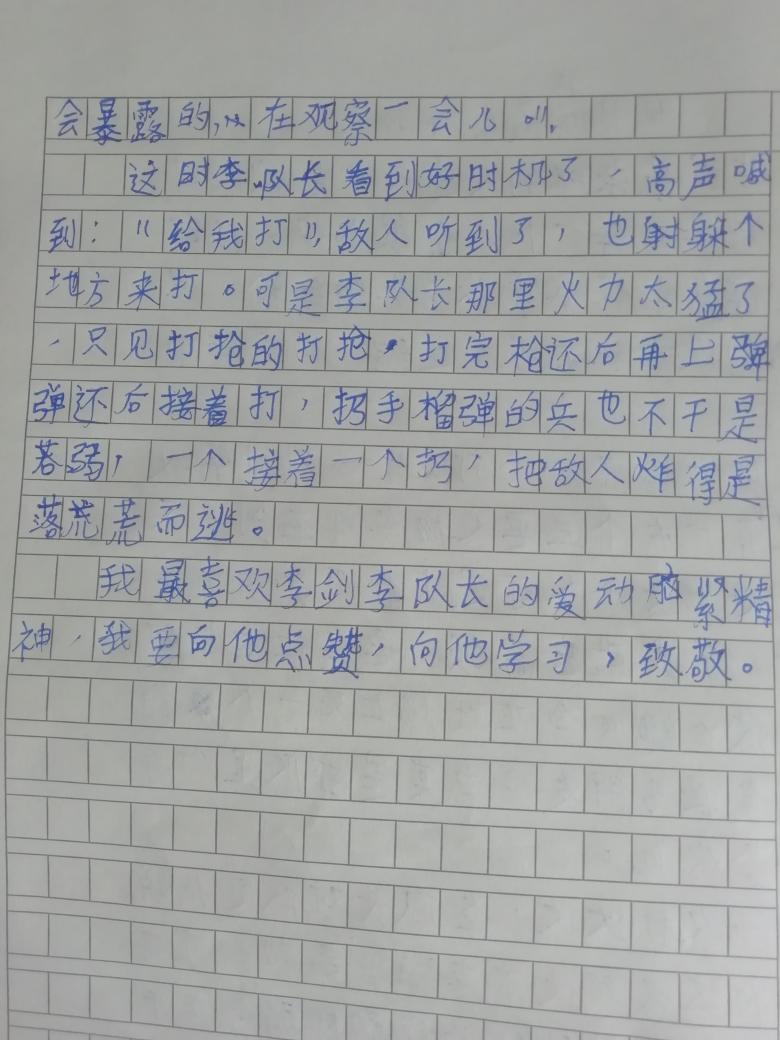 会暴露的，在观察一会儿"。
这时李队长看到好时机了，高声喊
到："给我打"，敌人听到了，也射躲个
地方来打。可是李队长那里火力太猛了
，只见打抢的打抢，打完枪还后再上弹
弹还后接着打，扔手榴弹的兵也不干是
若弱，一个接着一个扔，把敌人炸得是
落荒荒而逃。
我最喜欢李剑李队长的爱动脑紧精
神，我要向他点赞，向他学习，致敬。